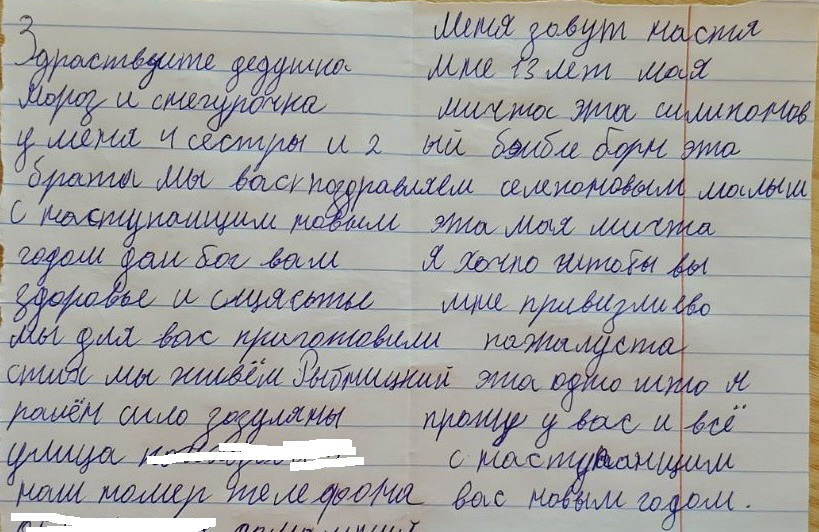 Здраствуите деддушка
Мороз и снегурочка
у меня 4 сестры и 2
браты мы васк поздравляем
с наступающим новым
годом дай бог вам
здоровье и сщясьтье
мы для вас приготовили
стих мы живём Рыбницкий
район сило зозуляны
улица
наш номер телефона
меня зовут настя
мне 13 лет мая
мичта эта силиконов
ый бэибле борн эта
селеконовым малыш
эта мая мичта
я хочю штобы вы
мне привизли ево
пажалуста
эта одно што я
прошу у вас и всё
с наступающим
вас новым годом.